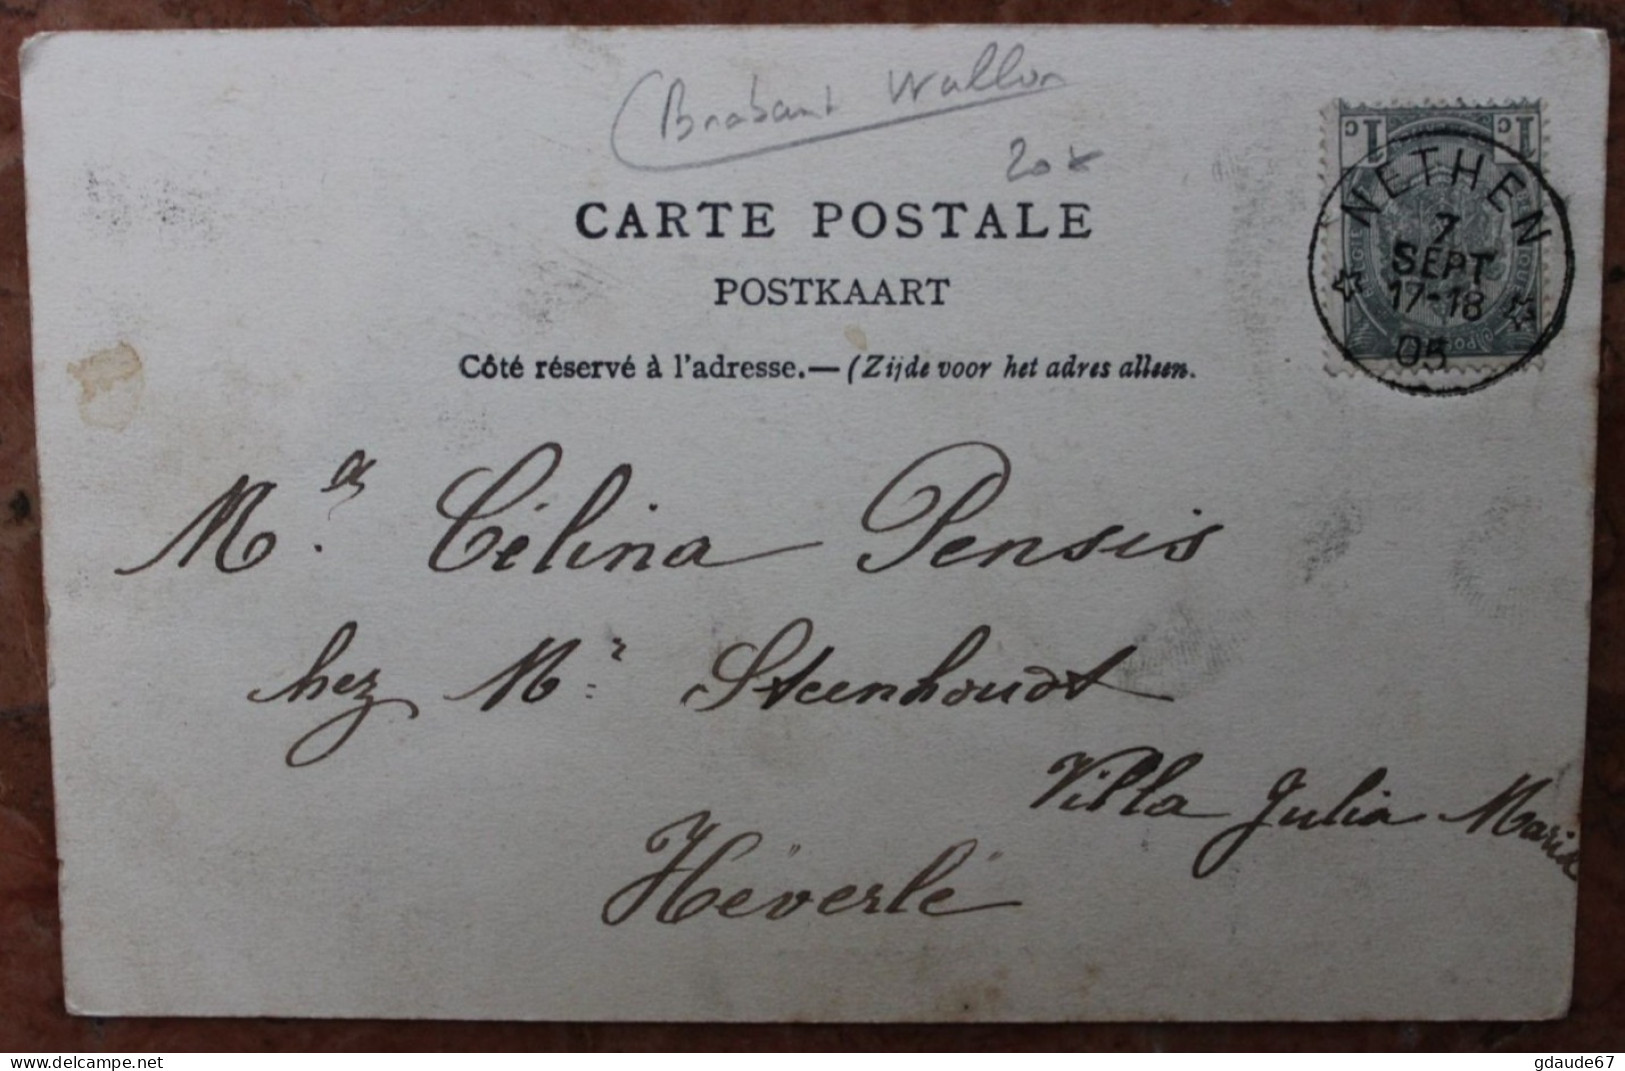 Brabant Wallon
CARTE POSTALE
POSTKAART
Côté réservé à l'adresse.—(Zijde voor het adres alleen.
1 c c 1
NETHEN
7
SEPT
17-18
05
Célina Pensis
chez Mr Steenhoudt
Villa Julia Maria
Héverlé
delcampe.net
gdaude67